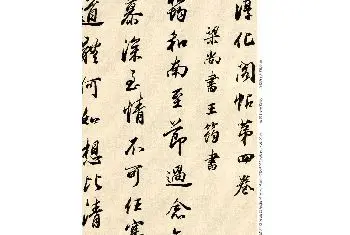 淳化阁帖第四卷
梁尚書王筠書
筠和南至節過念
慕深至情不可任寒
道體何如想比清